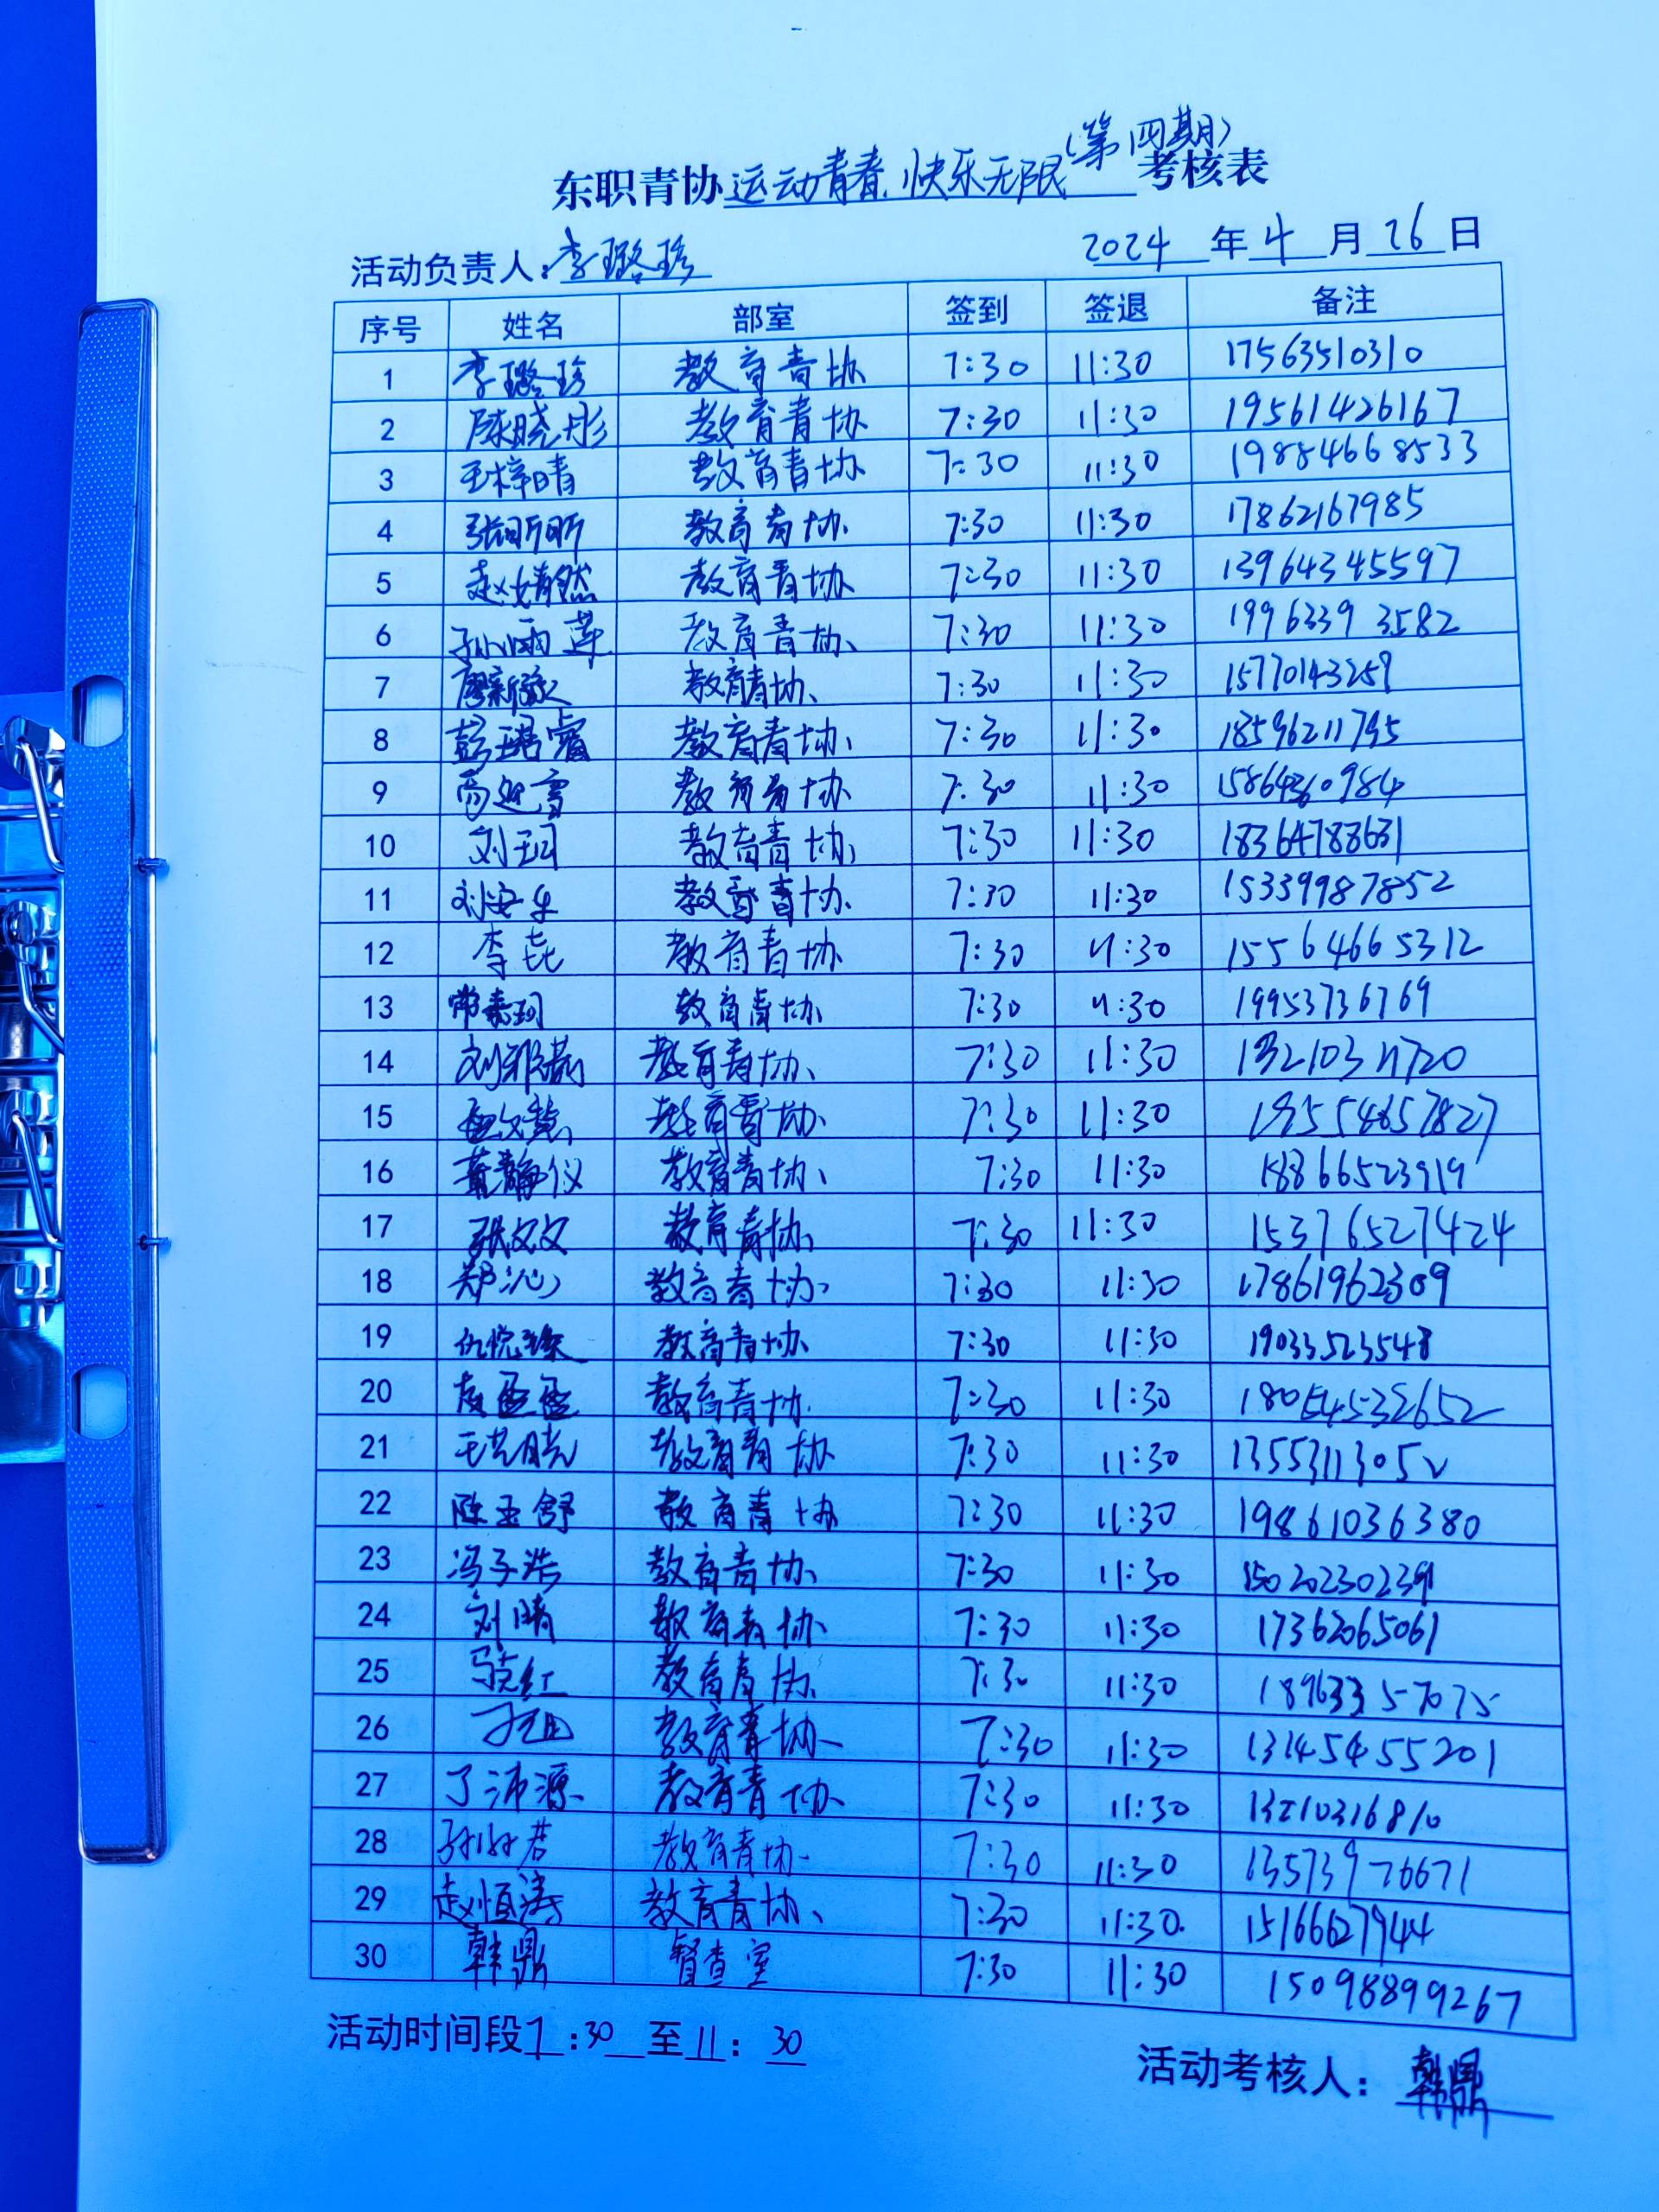 (第四期)
东职青协运动青春,快乐无限考核表
活动负责人:李璐珍 2024年4月26日
序号 姓名 部室 签到 签退 备注
1 李璐珍 教育青协 7:30 11:30 17563510310
2 陈晓彤 教育青协 7:30 11:30 19561426167
3 王梓晴 教育青协 7:30 11:30 19884668533
4 张昕昕 教育青协 7:30 11:30 17862167985
5 赵婧然 教育青协 7:30 11:30 13964345597
6 孙雨莲 教育青协 7:30 11:30 19963393582
7 教育青协 7:30 11:30 15770143259
8 彭珺睿 教育青协 7:30 11:30 18596211795
9 高迎雪 教育青协 7:30 11:30
10 刘珂 教育青协 7:30 11:30
11 刘安乐 教育青协 7:30 11:30 15339987852
12 李垚 教育青协 7:30 11:30 15564665312
13 常嘉珂 教育青协 7:30 11:30 19953736769
14 教育青协 7:30 11:30
15 孟文慧 教育青协 7:30 11:30
16 董静仪 教育青协 7:30 11:30 18866523919
17 张文文 教育青协 7:30 11:30 15376527424
18 郑沁 教育青协 7:30 11:30 17861962309
19 仇悦臻 教育青协 7:30 11:30 19033523548
20 教育青协 7:30 11:30
21 王艺晓 教育青协 7:30 11:30
22 陈玉舒 教育青协 7:30 11:30 19861036380
23 冯子浩 教育青协 7:30 11:30 15020230239
24 刘晴 教育青协 7:30 11:30 17362065061
25 教育青协 7:30 11:30 18963357075
26 教育青协 7:30 11:30 13145455201
27 丁沛源 教育青协 7:30 11:30
28 教育青协 7:30 11:30 13573976671
29 赵恒涛 教育青协 7:30 11:30 15166627944
30 韩鼎 督查室 7:30 11:30 15098899267
活动时间段7:30至11:30
活动考核人:韩鼎